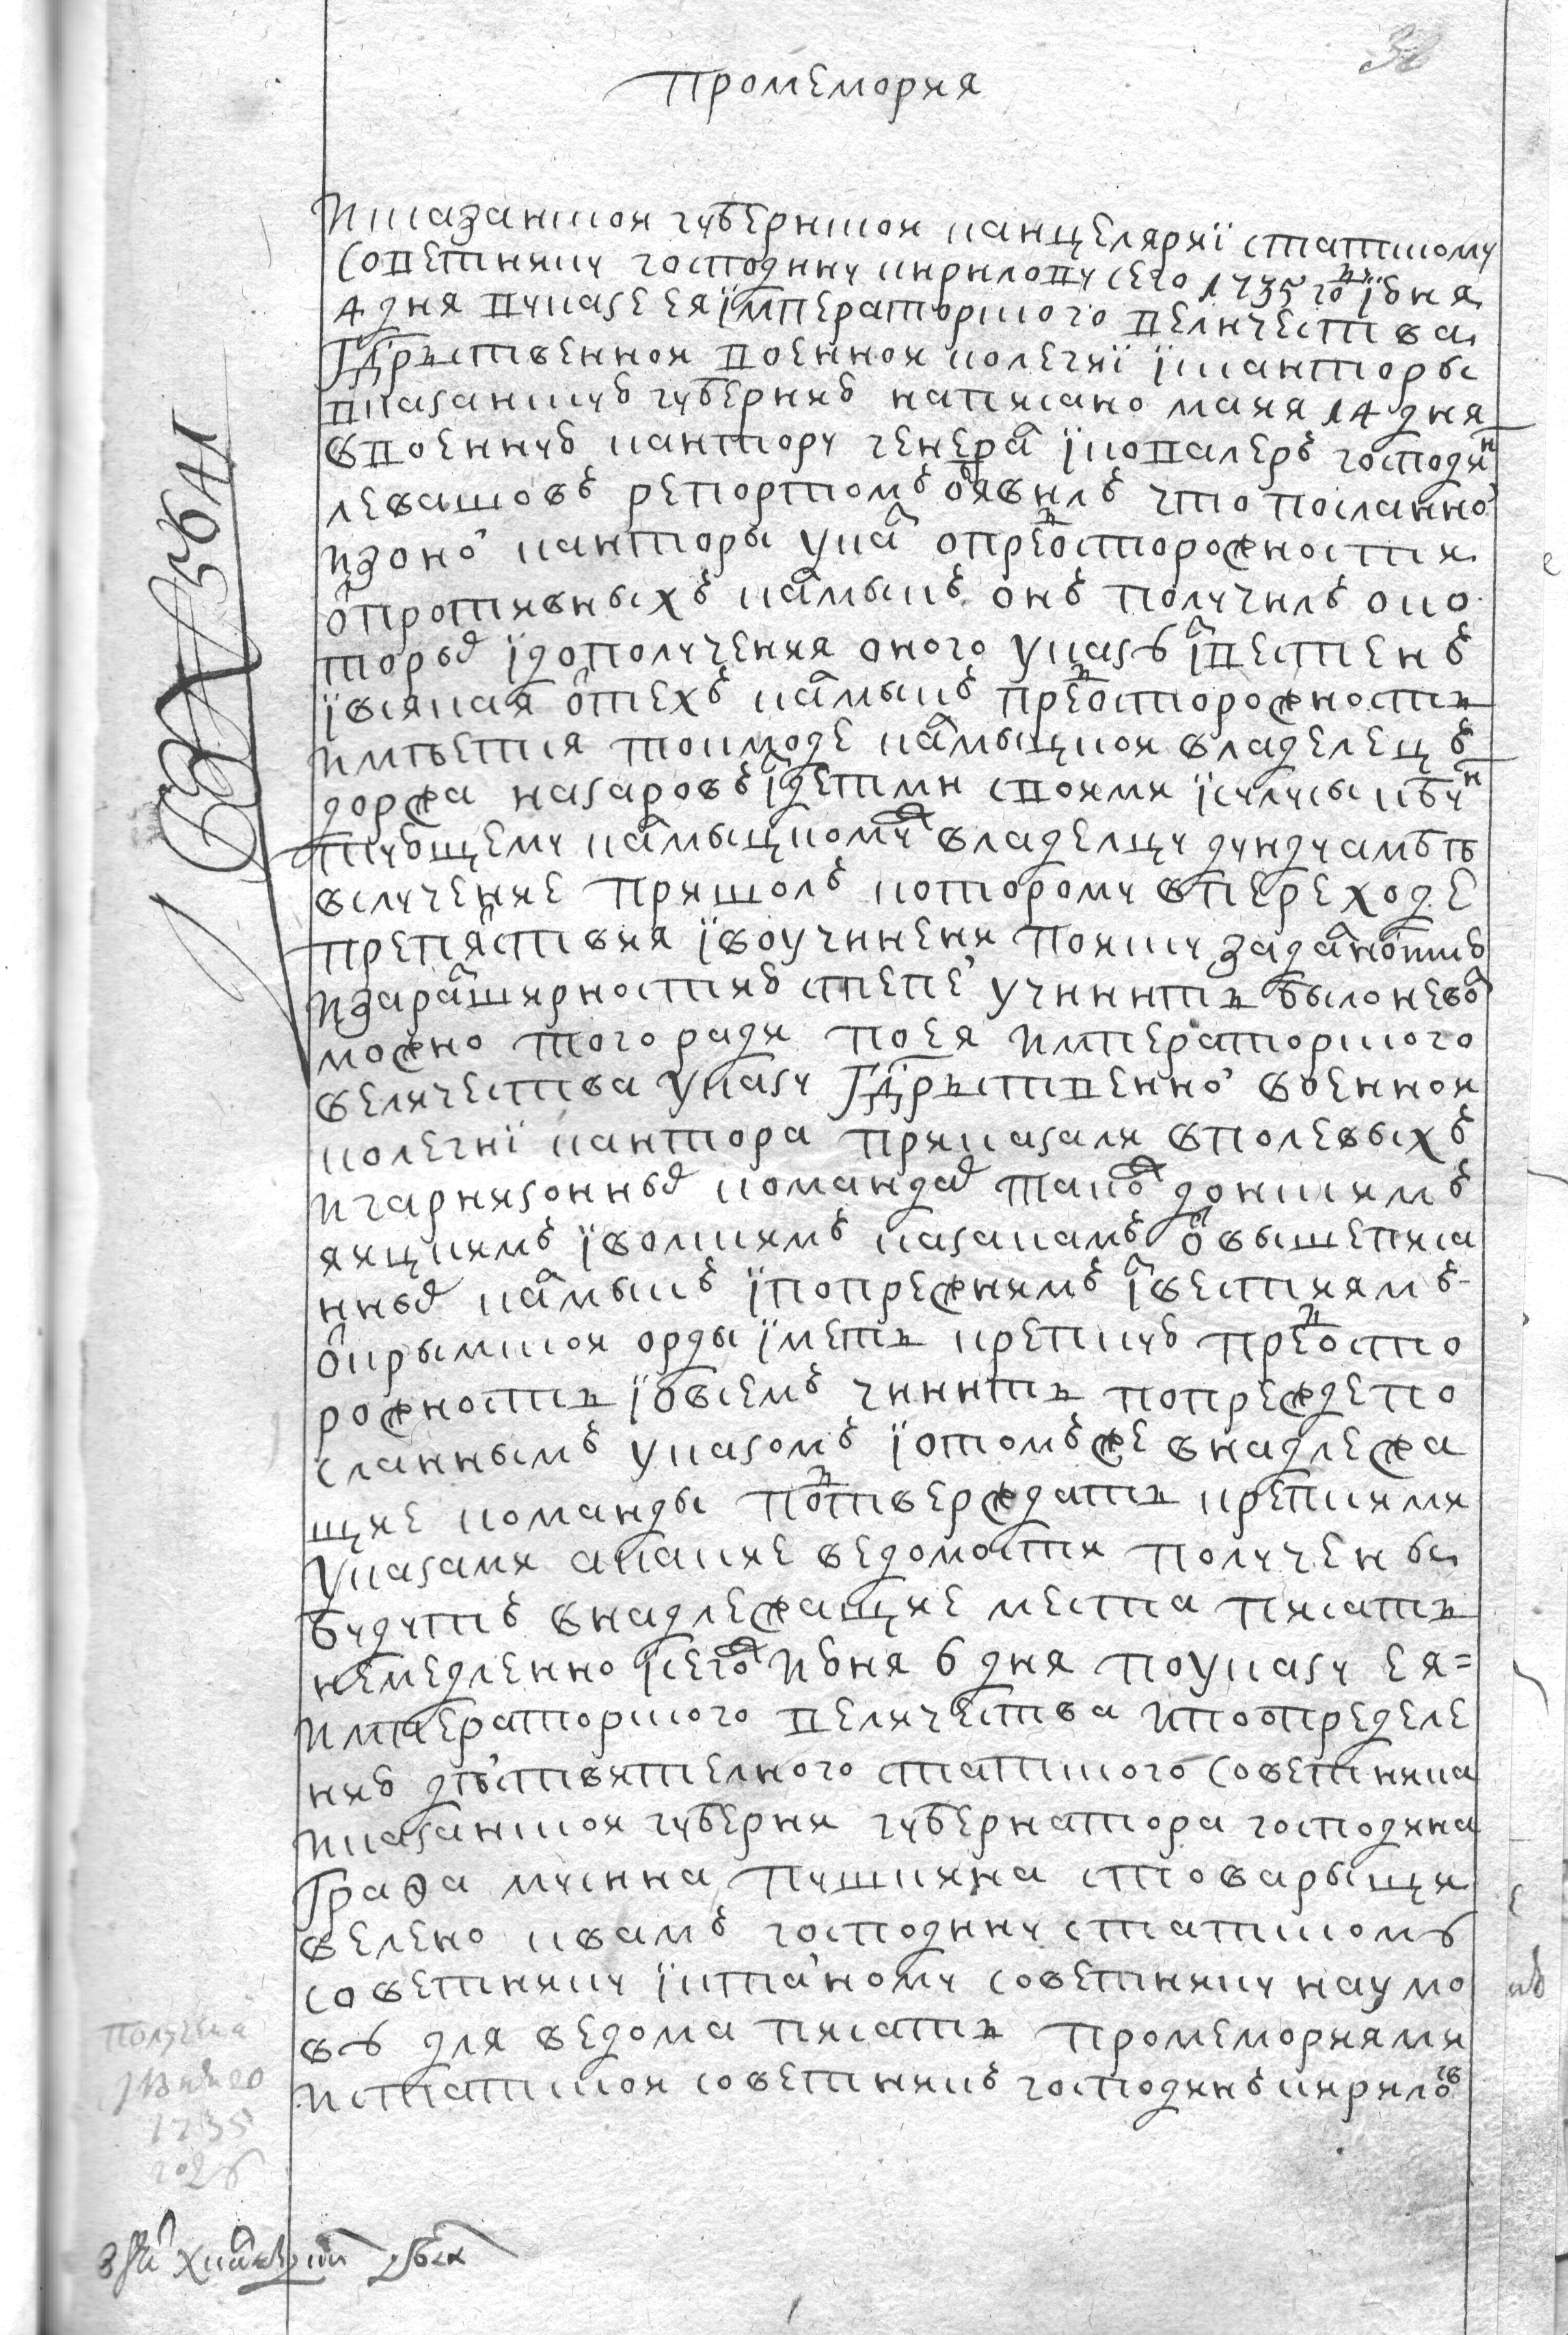 промемория
Исказанской губернской канцелярїи статскому
советнику господину кирилову сего 1735 го їюня
4 дня вуказе ея їмператорского величества
Гдрственной военной колегиї їсканторы
вказанскую губернию написано маия 14 дня
ввоенную кантору генерал їковалеръ господин
левашовъ репортомъ обявилъ что посланной
изоной канторы указ опредосторожности
отпротивныхъ калмыкъ онъ получилъ о ко
торых їдополучения оного указу їзвестенъ
ївсякая оттехъ калмыкъ предосторожность
имѣетца токмоде калмыцкой владелецъ
доржа назаровъ здетми своими їсулусы кбун
тующему калмыцкомуж владелцу дундуамбѣ
вслучение пришолъ которому впереходе
препятствия ївоучинени поиску задалностию
изарасширностию степей учинить было невоз
можно того ради поея императорского
величества указу Гдрственной военной
колегиї кантора приказали вполевых
игарнизонных командах також донскимъ
яицкимъ їволскимъ казакамъ отвышеписа
нных калмыкъ їпопрежнимъ їзвестиямъ
открымской орды їметь крепкую предосто
рожность їовсемъ чинить попреждепо
сланнымъ указомъ їотомъже внадлежа
щие команды подтверждать крепкими
указами акакие ведомости получены
будутъ внадлежащие места писать
немедленно їсегож июня 6 дня поуказу ея=
императорского величества ипоопределе
нию дѣйствителного статского советника
иказанской губерни губернатора господина
Графа мусина пушкина стоварыщи
велено квамъ господину статскому
советнику їстатцкому советнику наумо
ву для ведома писать промемориями
истатской советникъ господинъ кирилов
Получена
1735
году